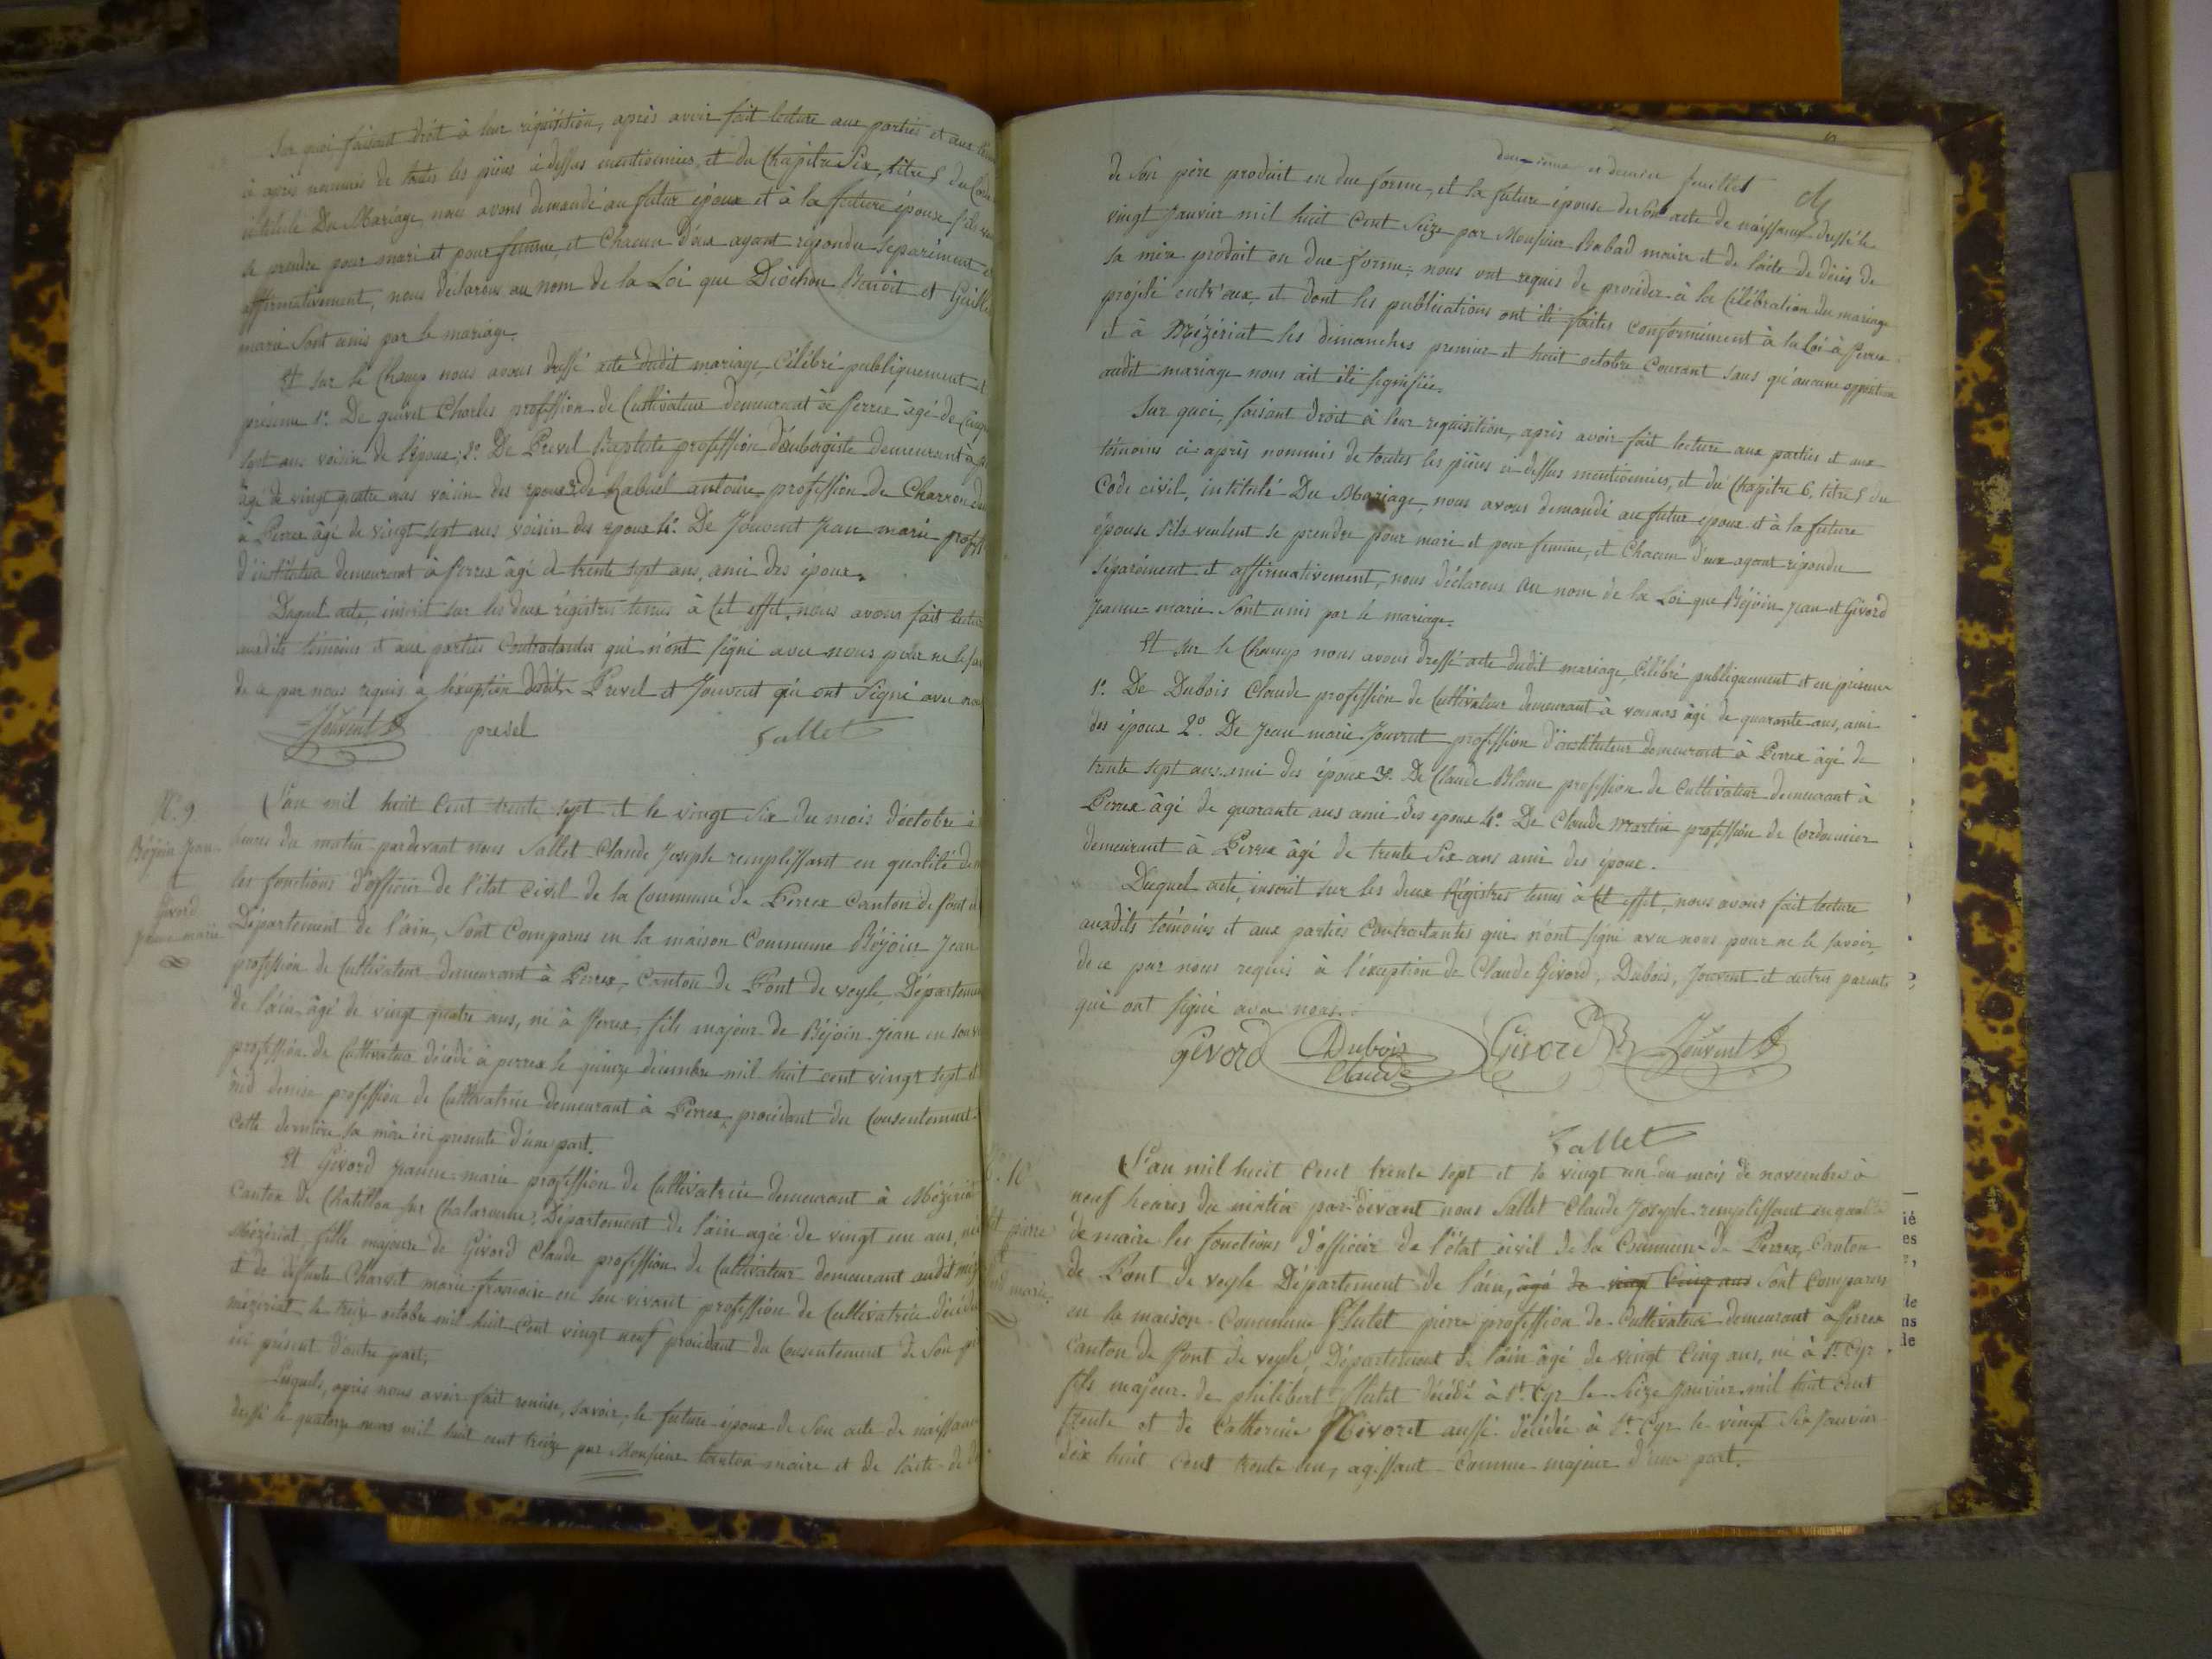 Sur quoi, faisant droit à leur réquisition, après avoir fait lecture aux parties et aux
ci après nommés de toutes les pièces ci dessus mentionnées, et du Chapitre Six, titre 5 du Code
intitulé Du Mariage, nous avons demandé au futur époux et à la future épouse s'ils
se prendre pour mari et pour femme, et Chacun d'eux ayant répondu séparément et
affirmativement, nous déclarons au nom de la Loi que Diochon Benoit et
marie Sont unis par le mariage.
Et sur le Champ nous avons dressé acte dudit mariage, Célébré publiquement et
présence 1º. De Charles profession de Cultivateur demeurant à Perrex âgé de
sept ans voisin de l'époux; 2º. De Prevel Baptiste profession d'aubergiste demeurant à
âgé de vingt quatre ans voisin des époux 3º. de antoine profession de Charron
à Perrex âgé de vingt sept ans voisin des époux 4º. De Jouvent Jean marie
d'instituteur demeurant à Perrex âgé de trente sept ans, ami des époux.
Duquel acte, inscrit sur les deux régistres tenus à Cet effet, nous avons fait lecture
auxdits témoins et aux parties Contractantes qui n'ont signé avec nous pour ne le
de ce par nous requis à l'éxception desdits Prevel et Jouvent qui ont Signé avec nous
Jouvent prevel Sallet
N. 9
Béjoin Jean
et
Givord
jeanne marie
L'an mil huit Cent trente sept et le vingt Six du mois d'octobre à
heures du matin pardevant nous Sallet Claude Joseph remplissant en qualité de
les fonctions d'officier de l'état Civil de la Commune de Perrex Canton de Pont de
Département de l'ain, Sont Comparus en la maison Commune Béjoin Jean
profession de Cultivateur demeurant à Perrex, Canton de Pont de veyle, Département
de l'ain, âgé de vingt quatre ans, né à Perrex, fils majeur de Béjoin Jean en son
profession de Cultivateur décédé à perrex le quinze décembre mil huit cent vingt sept et
denise profession de Cultivatrice demeurant à Perrex, procédant du Consentement
cette dernière sa mère ici présente d'une part.
Et Givord jeanne-marie profession de Cultivatrice demeurant à Mézériat
Canton de Chatillon sur Chalaronne, Département de l'ain agée de vingt un ans, née
Mézériat fille majeure de Givord Claude profession de Cultivateur demeurant audit
et de défunte Charvet marie françoise en son vivant profession de Cultivatrice décédée
mézériat le treize octobre mil huit Cent vingt neuf procédant du Consentement de Son
ici présent d'autre part,
Lesquels, après nous avoir fait remise, savoir, le futur époux de Son acte de naissance
dressé le quatorze mars mil huit cent treize par Monsieur maire et de l'acte de
et dernier feuillet
de Son père produit en due forme, et la future épouse de Son acte de naissance dressé le
vingt Janvier mil huit Cent Seize par Monsieur Rabad maire et de l'acte de décès de
sa mère produit en due forme; nous ont requis de procéder à la Célébration du mariage
projeté entr'eux, et dont les publications ont été faites Conformément à la Loi à Perrex
et à Mézériat les dimanches premier et huit octobre Courant sans qu'aucune opposition
audit mariage nous ait été signifiée.
Sur quoi, faisant droit à leur requisition, après avoir fait lecture aux parties et aux
témoins ci-après nommés de toutes les pièces ci-dessus mentionnées, et du Chapitre 6. titre 5 du
Code civil, intitulé Du Mariage, nous avons demandé au futur epoux et à la future
épouse s'ils veulent se prendre pour mari et pour femme, et Chacun d'eux ayant répondu
séparément et affirmativement, nous déclarons au nom de la Loi que Béjoin jean et Givord
jeanne-marie Sont unis par le mariage.
Et sur le Champ nous avons dressé acte dudit mariage, Célébré publiquement et en présence
1º. De Dubois Claude profession de Cultivateur demeurant à vonnas âgé de quarante ans, ami
des époux 2º. De Jean marie Jouvent profession d'instituteur demeurant à Perrex âgé de
trente sept ans ami des époux 3º. De Claude Blanc profession de Cultivateur demeurant à
Perrex âgé de quarante ans ami des epoux 4º. De Claude Martin profession de Cordonnier
demeurant à Perrex âgé de trente Six ans ami des époux.
Duquel acte, inscrit sur les deux Régistres tenus à Cet effet, nous avons fait lecture
auxdits témoins et aux parties Contractantes qui n'ont signé avec nous pour ne le savoir,
de ce par nous requis à l'éxception de Claude Givord, Dubois, Jouvent et autres parents
qui ont signé avec nous.
Givord Dubois Claude Givord Jouvent
Sallet
L'an mil huit Cent trente sept et le vingt un du mois de novembre à
neuf heures du matin par-devant nous Sallet Claude Joseph remplissant en qualité
de maire les fonctions d'officier de l'état civil de la Commune de Perrex, Canton
de Pont de veyle Département de l'ain, âgé de vingt Cinq ans Sont Comparus
en la maison Commune Flutet pierre profession de Cultivateur demeurant à Perrex
Canton de Pont de veyle, Département de l'ain âgé de vingt Cinq ans, né à St. Cyr
fils majeur de philibert Flutet décédé à St. Cyr le Seize Janvier mil huit Cent
trente et de Catherine Nivoret aussi décédée à St. Cyr le vingt Six Janvier
dix huit Cent trente un, agissant Comme majeur d'une part.